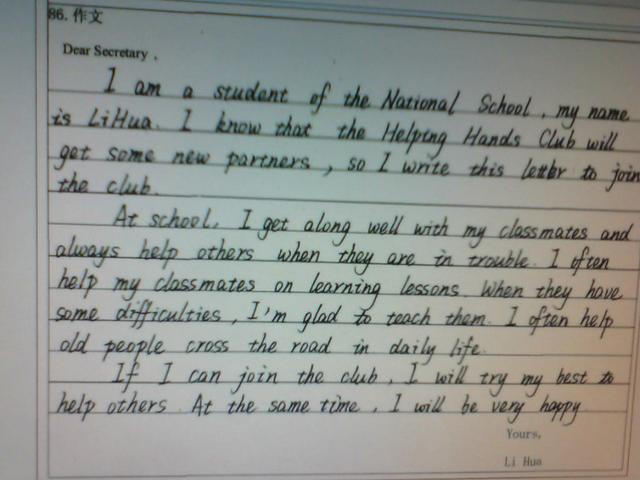 86. 作文
Dear Secretary,
I am a student of the National School, my name
is LiHua. I know that the Helping Hands Club will
get some new partners, so I write this letter to join
the club.
At school, I get along well with my classmates and
always help others when they are in trouble. I often
help my classmates on learning lessons. When they have
some difficulties, I'm glad to teach them. I often help
old people cross the road in daily life.
If I can join the club, I will try my best to
help others. At the same time, I will be very happy
Yours,
Li Hua